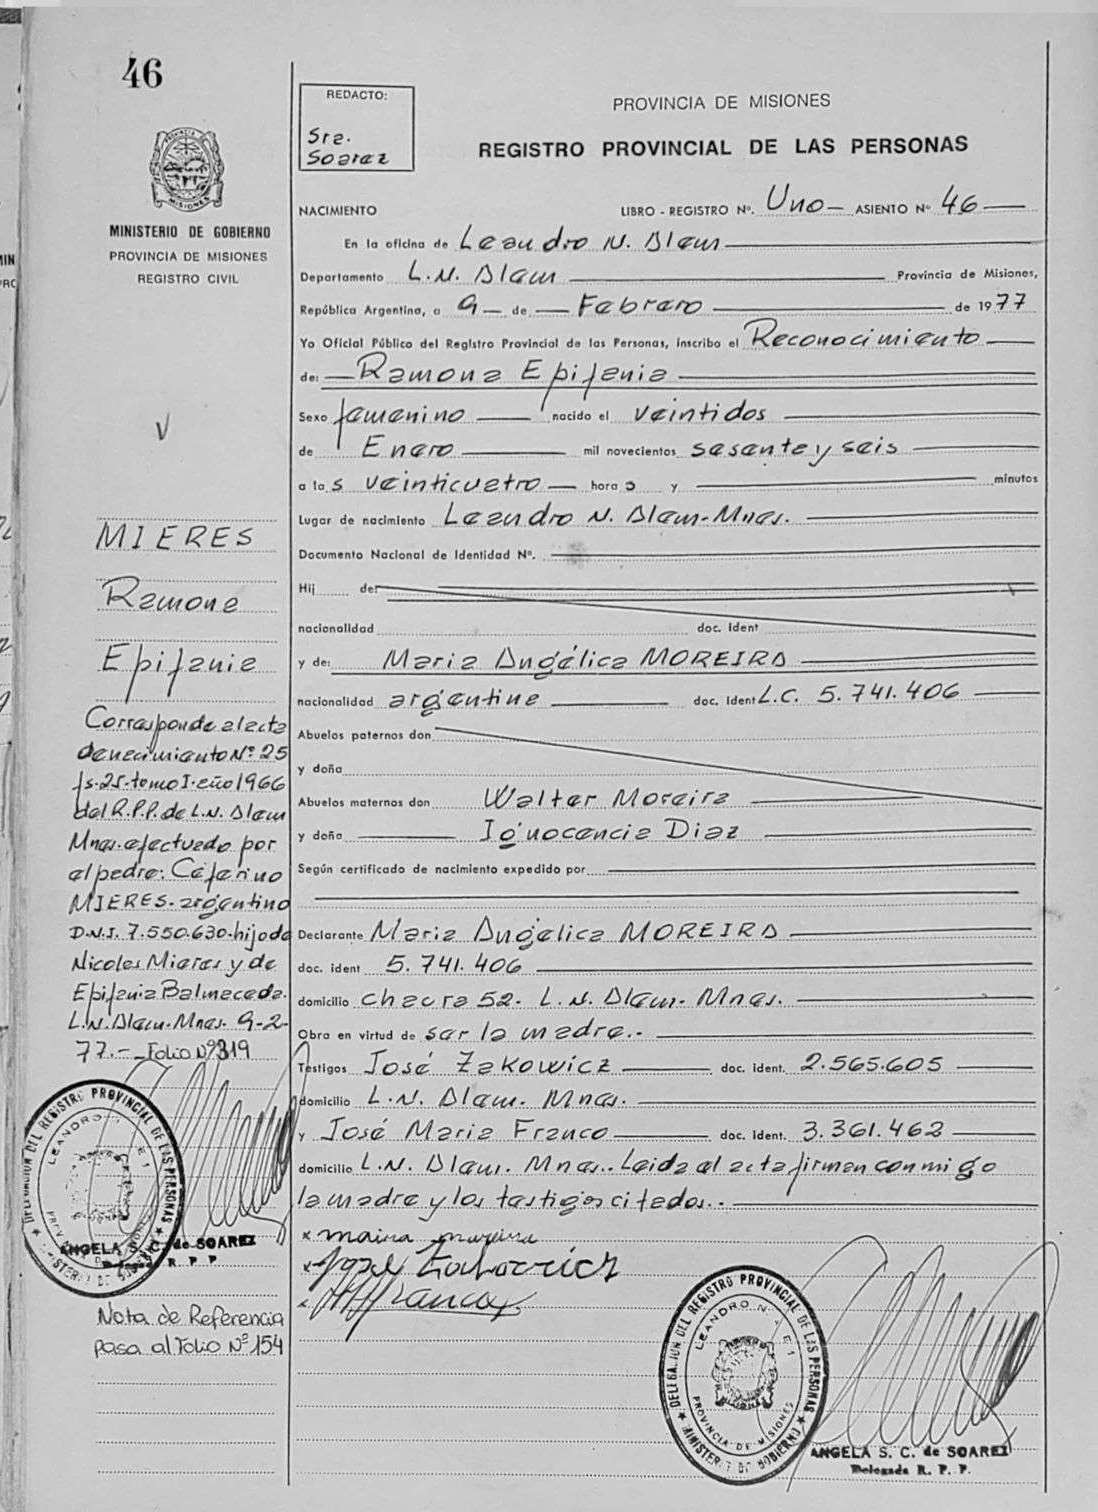 46
MINISTERIO DE GOBIERNO
PROVINCIA DE MISIONES
REGISTRO CIVIL
MIERES
Ramona
Epifania
Corresponde al acta
de nacimiento Nº 25
fs. 25. tomo I. año 1966
del R.P.P. de L.N. Alem
Mnes. efectuado por
el padre: Ceferino
MIERES. argentino
D.N.I. 7.550.630. hijo de
Nicolas Mieres y de
Epifania Balmaceda.
L.N. Alem. Mnes. 9-2-
77.- Folio Nº 319
DELEGACION DEL REGISTRO PROVINCIAL DE LAS PERSONAS
ANGELA S. C. de SOAREZ
Delegada R. P. P.
Nota de Referencia
pasa al Folio Nº 154
REDACTO:
Sra.
Soarez
PROVINCIA DE MISIONES
REGISTRO PROVINCIAL DE LAS PERSONAS
NACIMIENTO LIBRO - REGISTRO Nº. Uno - ASIENTO Nº 46
En la oficina de Leandro N. Alem
Departamento L.N. Alem Provincia de Misiones,
República Argentina, a 9 de Febrero de 1977
Yo Oficial Público del Registro Provincial de las Personas, inscribo el Reconocimiento
de: Ramona Epifania
Sexo femenino nacido el veintidos
de Enero mil novecientos sesenta y seis
a las veinticuatro horas y minutos
Lugar de nacimiento Leandro N. Alem-Mnes.
Documento Nacional de Identidad Nº.
Hij de:
nacionalidad doc. ident
y de: Maria Angélica MOREIRA
nacionalidad argentina doc. ident L.C. 5.741.406
Abuelos paternos don
y doña
Abuelos maternos don Walter Moreira
y doña Ignocencia Diaz
Según certificado de nacimiento expedido por
Declarante Maria Angélica MOREIRA
doc. ident 5.741.406
domicilio chacra 52. L.N. Alem. Mnes.
Obra en virtud de ser la madre.-
Testigos José Zakowicz doc. ident. 2.565.605
domicilio L.N. Alem. Mnes.
y José Maria Franco doc. ident. 3.361.462
domicilio L.N. Alem. Mnes.. Leida el acta firman conmigo
la madre y los testigos citados.-
DELEGACION DEL REGISTRO PROVINCIAL DE LAS PERSONAS
MINISTERIO DE GOBIERNO
PROVINCIA DE MISIONES
ANGELA S. C. de SOAREZ
Delegada R. P. P.